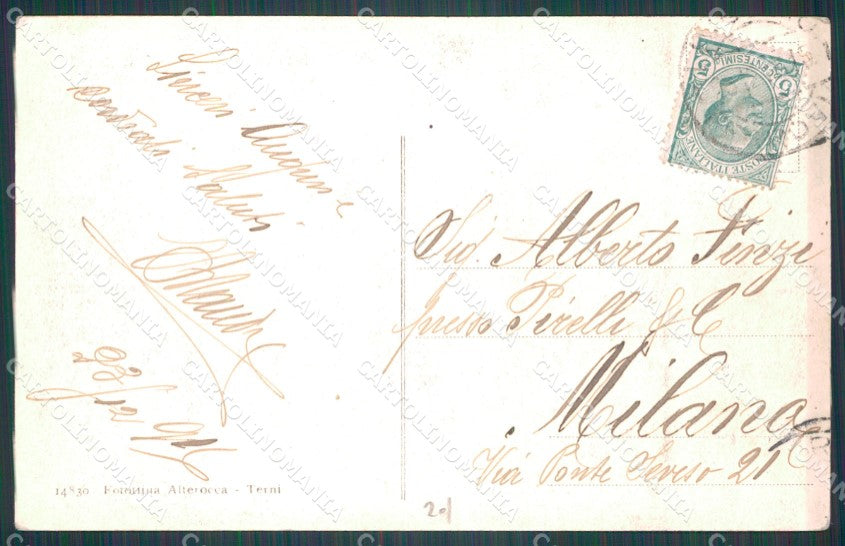 Sinceri Auguri e
cordiali Saluti
23/12 915
14830 Fototipia Alterocca - Terni
POSTE ITALIANE
CENTESIMI
5 5
Sig. Alberto Finzi
presso Pirelli & C
Milano
Via Ponte Seveso 21
20/
CARTOLINOMANIA